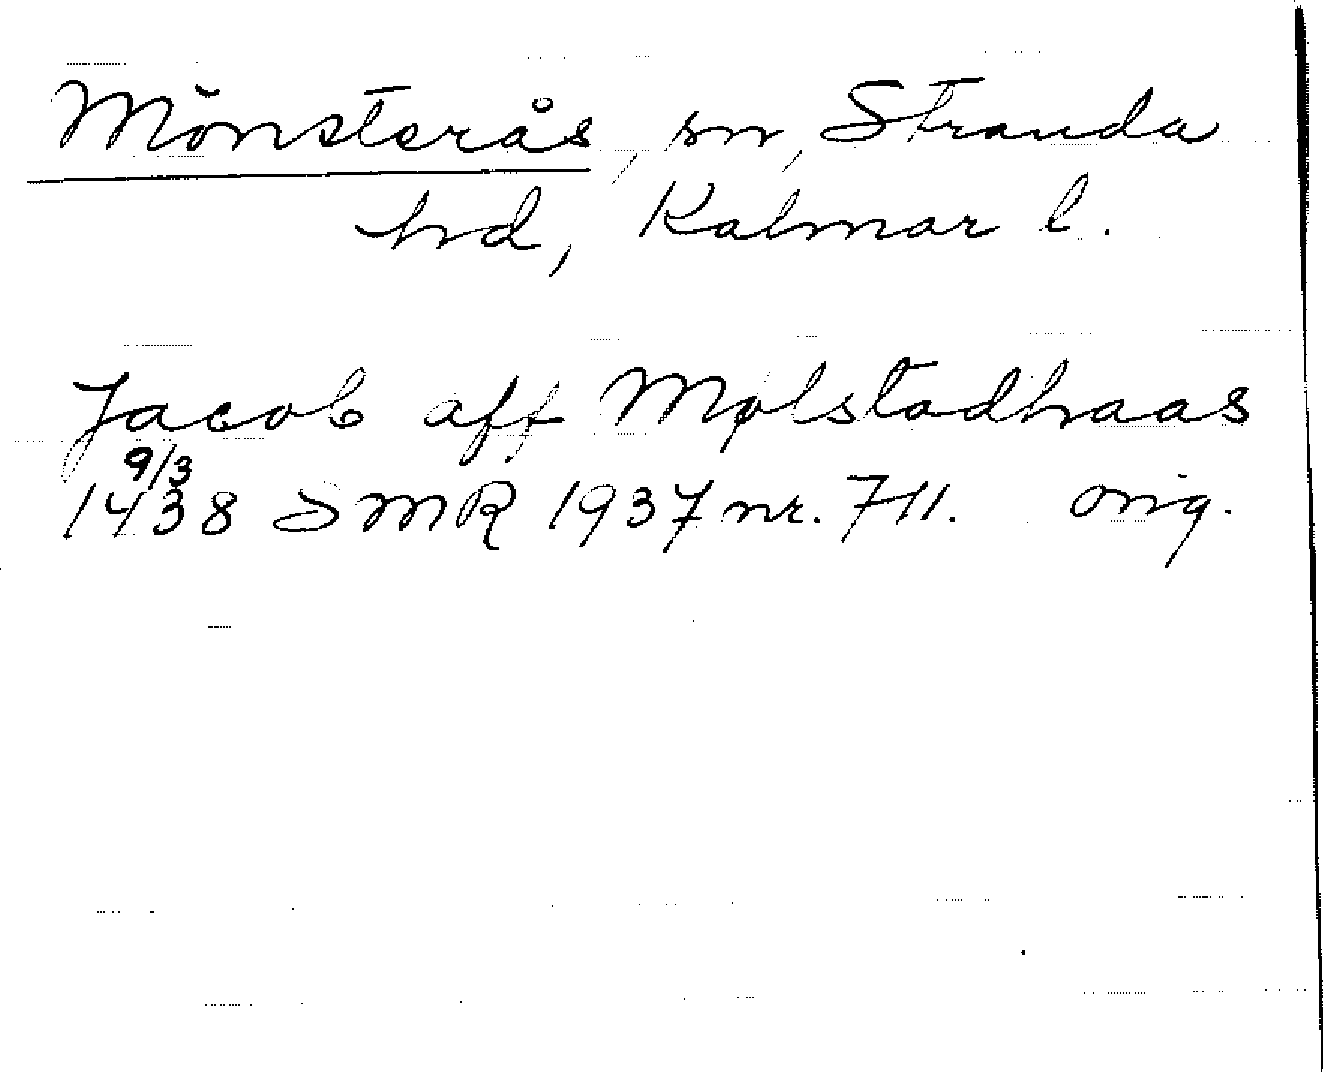 Mönsterås, sn, Stranda
hd, Kalmar l.
Jacob aff Mølstadhaas
9/3
1438 SMR 1937 nr. 711. orig.